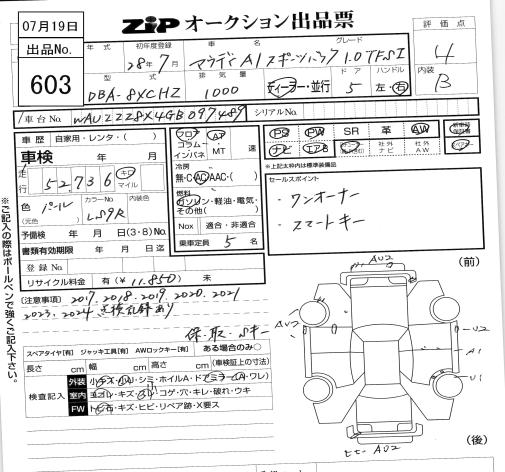 07月19日
出品No.
603
ZIP オークション出品票
評価点
4
内装
B
年式 初年度登録 車名 グレード
28年7月 アウディA1スポーツバック 1.0TFSI
型式 排気量 ドア ハンドル
DBA-8XCHZ 1000 ディーラー・並行 5 左・右
車台No. WAUZZZ8X4GB097489 シリアルNo.
車歴 自家用・レンタ・( )
車検 年 月
走行 52,736 キロ マイル
色 パール カラーNo. LS9R 内装色
(元色)
予備検 年 月 日(3・8)No.
書類有効期限 年 月 日迄
登録No.
リサイクル料金 有(¥11.850) 未
フロア AT
コラム MT
インパネ 速
冷房
無・C・AC・AAC・( )
燃料
ガソリン・軽油・電気・
その他( )
Nox 適合・非適合
乗車定員 5 名
PS PW SR 革 AW
ナビ エアB 社外ナビ 社外AW
※上記太枠内は標準装備品
セールスポイント
・ワンオーナー
・スマートキー
(注意事項) 2017.2018.2019.2020.2021
2023.2024点検記録あり
保、取、Sキー
スペアタイヤ[有] ジャッキ工具[有] AWロックキー[有] ある場合のみ○
長さ cm 幅 cm 高さ cm (車検証上の寸法)
検査記入
外装 小キズ・小U・シミ・ホイルA・ドアミラー(A・ワレ)
室内 ヨゴレ・キズ・スレ・コゲ・穴・キレ・破れ・ウキ
FW トビ石・キズ・ヒビ・リペア跡・X要ス
※ご記入の際はボールペンで強くご記入下さい。
(前)
AU2
AU2
U2
A1
U1
ヒビ AU2
(後)